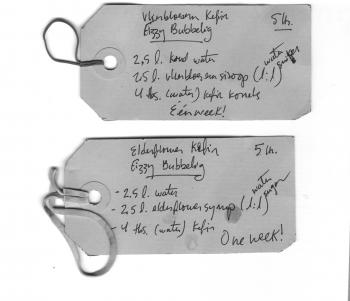 Vlierbloesem Kefir 5 ltr.
Fizzy Bubbelig
2,5 l. koud water
2,5 l. vlierbloesem siroop (1:1) water suiker
4 tbs. (water) kefir korrels
Één week!
Elderflower Kefir 5 ltr.
Fizzy Bubbelig
- 2,5 l. water
- 2,5 l. elderflower syrup (1:1) water sugar
- 4 tbs. (water) kefir
One week!